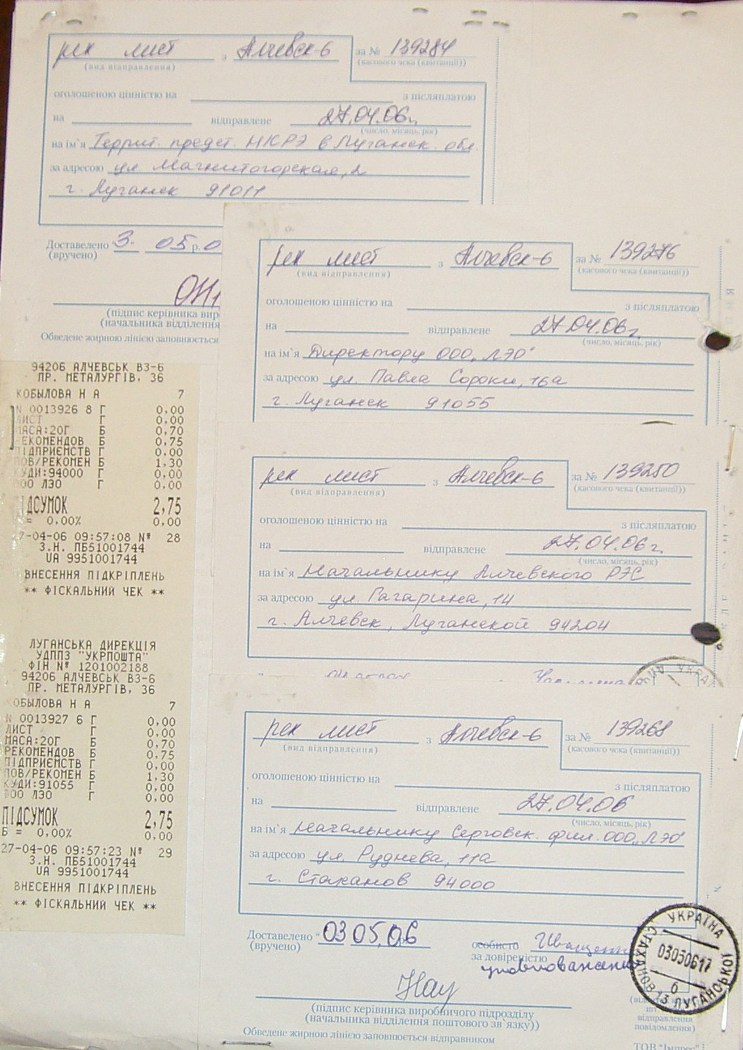 рек лист з Алчевск-6 за № 139284
(вид відправлення) (касового чека (квитанції))
оголошеною цінністю на з післяплатою
на відправлене 27.04.06г.
(число, місяць, рік)
на ім'я Террит. предст. НКРЭ в Луганск. обл.
за адресою ул Магнитогорская, 2
г. Луганск 91011
Доставлено 3. 05.0
(вручено)
(підпис керівника вир
(начальника відділення
Обведене жирною лінією заповнюється
рек лист з Алчевск-6 за № 139276
(вид відправлення) (касового чека (квитанції))
оголошеною цінністю на з післяплатою
на відправлене 27.04.06г.
(число, місяць, рік)
на ім'я Директору ООО "ЛЭО"
за адресою ул. Павла Сороки, 16а
г. Луганск 91055
рек лист з Алчевск-6 за № 139250
(вид відправлення) (касового чека (квитанції))
оголошеною цінністю на з післяплатою
на відправлене 27.04.06г.
(число, місяць, рік)
на ім'я Начальнику Алчевского РЭС
за адресою ул Гагарина, 14
г. Алчевск, Луганской 94204
рек лист з Алчевск-6 за № 139268
(вид відправлення) (касового чека (квитанції))
оголошеною цінністю на з післяплатою
на відправлене 27.04.06
(число, місяць, рік)
на ім'я Начальнику Серговск. фил. ООО "ЛЭО"
за адресою ул. Руднева, 11а
г. Стаханов 94000
Доставлено "03 05.06
(вручено)
особисто
за довіреністю
(підпис керівника виробничого підрозділу
(начальника відділення поштового зв'язку))
Обведене жирною лінією заповнюється відправником
відправлення
повідомлення)
ТОВ "Імпрес"
УКРАЇНА
03050617
б
СТАХАНОВ 13 ЛУГАНСЬКОЇ
94206 АЛЧЕВСЬК ВЗ-6
ПР. МЕТАЛУРГІВ, 36
КОБЫЛОВА Н А 7
N 0013926 8 Г 0.00
ЛИСТ Г 0.00
МАСА:20Г Б 0.70
РЕКОМЕНДОВ Б 0.75
ПІДПРИЄМСТВ Г 0.00
ПОВ/РЕКОМЕН Б 1.30
КУДИ:94000 Г 0.00
ООО ЛЭО Г 0.00
ПІДСУМОК 2,75
Б = 0.00% 0.00
27-04-06 09:57:08 № 28
З.Н. ПБ51001744
UA 9951001744
ВНЕСЕННЯ ПІДКРІПЛЕНЬ
** ФІСКАЛЬНИЙ ЧЕК **
ЛУГАНСЬКА ДИРЕКЦІЯ
УДППЗ "УКРПОШТА"
ФІН № 1201002188
94206 АЛЧЕВСЬК ВЗ-6
ПР. МЕТАЛУРГІВ, 36
КОБЫЛОВА Н А 7
N 0013927 6 Г 0.00
ЛИСТ Г 0.00
МАСА:20Г Б 0.70
РЕКОМЕНДОВ Б 0.75
ПІДПРИЄМСТВ Г 0.00
ПОВ/РЕКОМЕН Б 1.30
КУДИ:91055 Г 0.00
ООО ЛЭО Г 0.00
ПІДСУМОК 2,75
Б = 0.00% 0.00
27-04-06 09:57:23 № 29
З.Н. ПБ51001744
UA 9951001744
ВНЕСЕННЯ ПІДКРІПЛЕНЬ
** ФІСКАЛЬНИЙ ЧЕК **